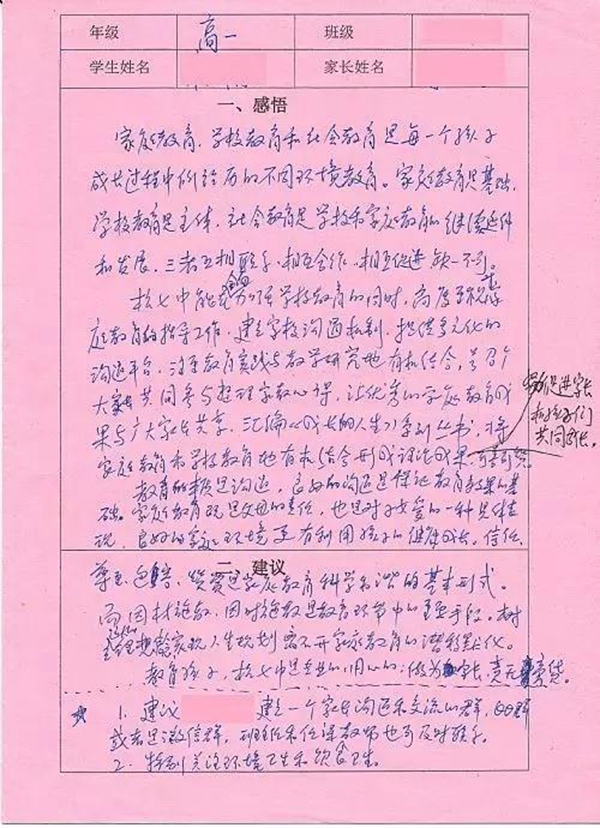 年级 高一 班级
学生姓名 家长姓名
一、感悟
家庭教育、学校教育和社会教育是每一个孩子
成长过程中所经历的不同环境教育。家庭教育是基础,
学校教育是主体,社会教育是学校和家庭教育的继续延伸
和发展,三者互相联系、相互合作、相互促进缺一不可。
杭七中能充分加强学校教育的同时,高度重视家
庭教育的指导工作,建立家校沟通机制,提供多元化的
沟通平台,注重教育实践与教学研究地有机结合,号召广
大家长共同参与整理家教心得,让优秀的家庭教育成
果与广大家长共享,汇编《成长的人生》系列丛书,将
家庭教育和学校教育地有机结合形成理论成果,
促进家长
和孩子们
共同成长。
教育的本质是沟通,良好的沟通是保证教育效果的基
础。家庭教育既是父母的责任,也是对子女爱的一种具体体
现,良好的家庭环境更有利用孩子的健康成长。信任、
二、建议
尊重、包容、赞赏是家庭教育科学和谐的基本形式。
而因材施教、因时施教是教育环节中的重要手段。树
理想 人生规划离不开家庭教育的潜移默化。
教育孩子,杭七中是专业的用心的;做为家长,责无旁贷。
1. 建议 建立一个家长沟通和交流的群,QQ群
或者是微信群,班主任和任课教师也可及时联系。
2. 特别关注环境卫生和饮食卫生。